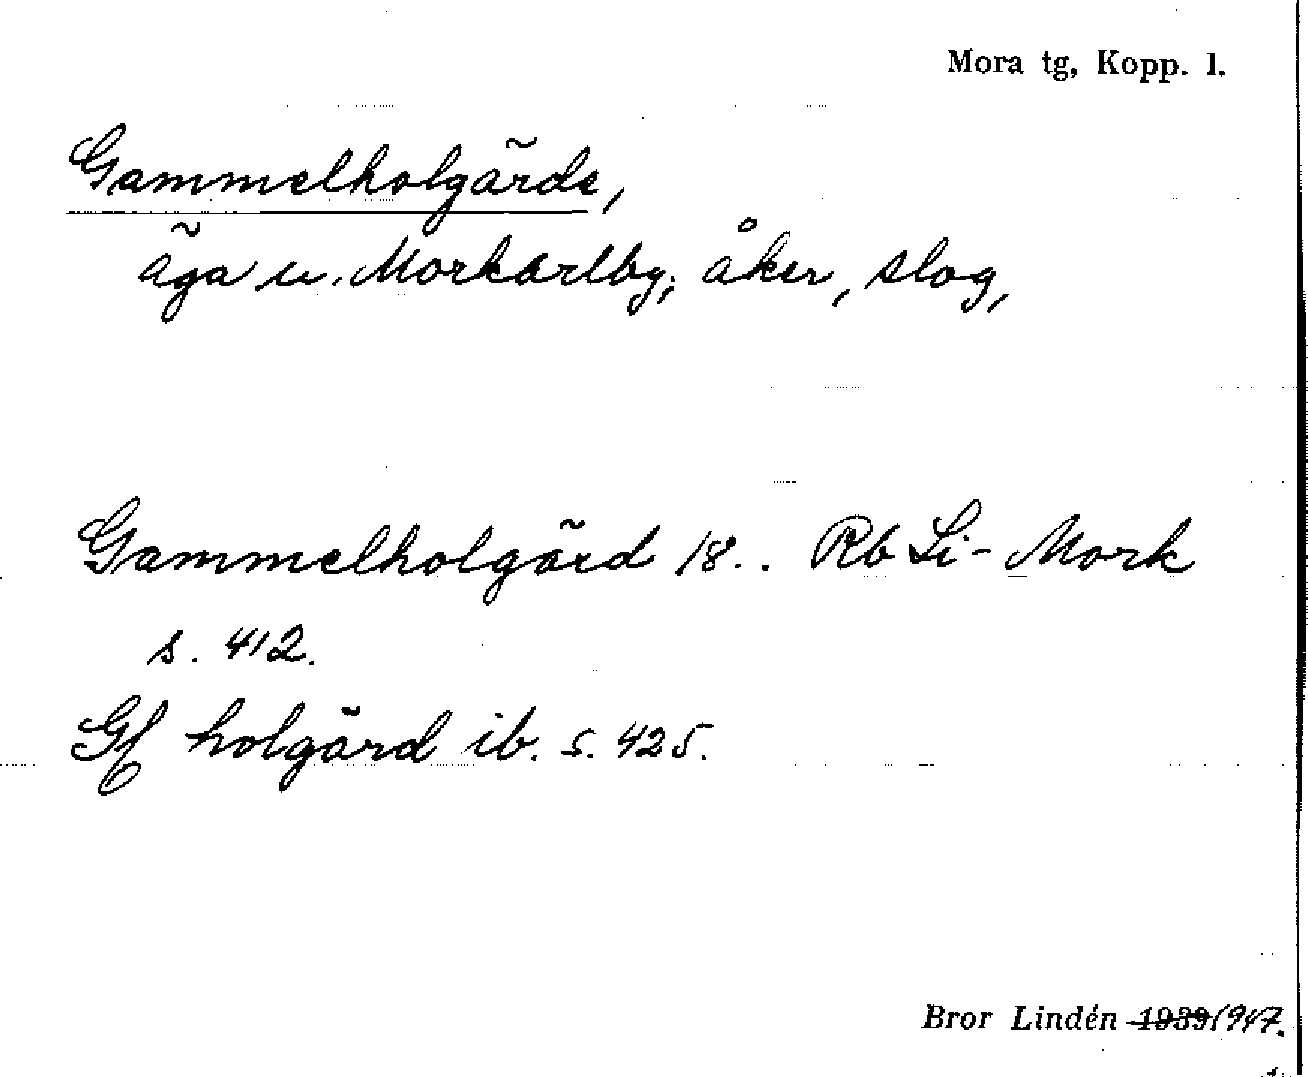 Mora tg, Kopp. l.
Gammelholgärde,
äga u. Morkarlby; åker, slog,
Gammelholgärd 18.. Rb Li-Mork
s. 412.
Gl holgärd ib. s. 425.
Bror Lindén 1939 1947.